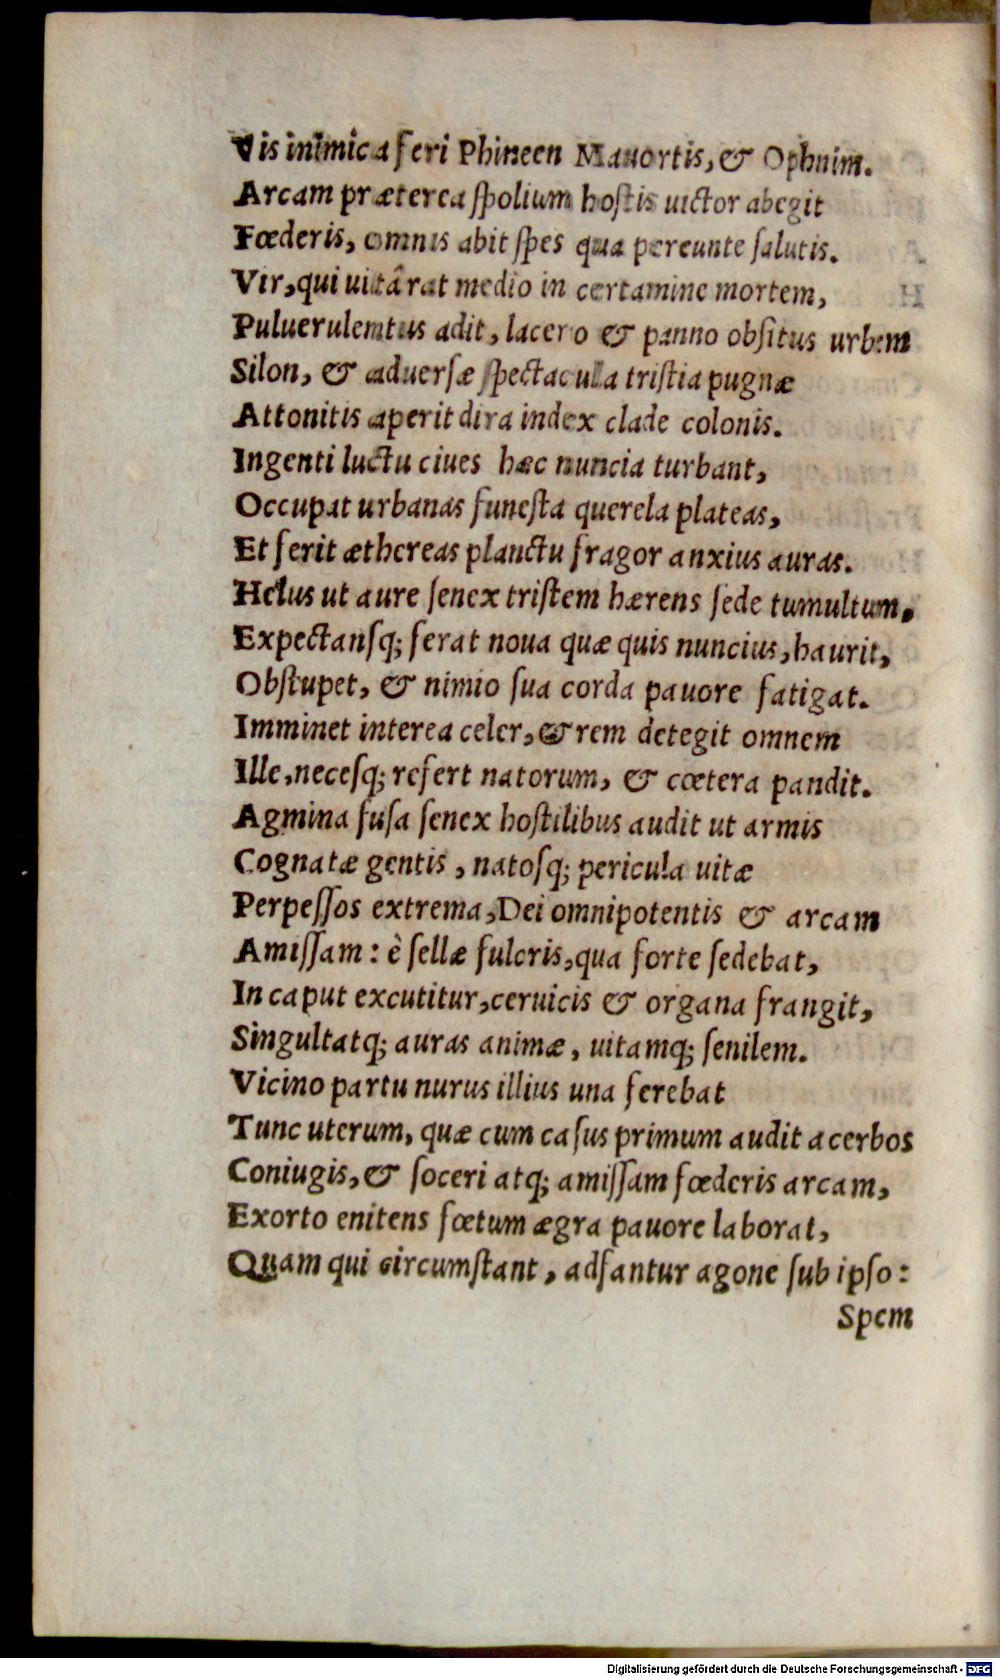 Vis inimica feri Phineen Mauortis, & Ophnim.
Arcam præterea ſpolium hoſtis uictor abegit
Fœderis, omnis abit ſpes qua pereunte ſalutis.
Vir, qui uitârat medio in certamine mortem,
Puluerulentus adit, lacero & panno obſitus urbem
Silon, & aduerſæ ſpectacula triſtia pugnæ
Attonitis aperit dira index clade colonis.
Ingenti luctu ciues hæc nuncia turbant,
Occupat urbanas funeſta querela plateas,
Et ferit æthereas planctu fragor anxius auras.
Helus ut aure ſenex triſtem hærens ſede tumultum,
Expectansq; ferat noua quæ quis nuncius, haurit,
Obſtupet, & nimio ſua corda pauore fatigat.
Imminet interea celer, & rem detegit omnem
Ille, necesq; refert natorum, & cœtera pandit.
Agmina fuſa ſenex hoſtilibus audit ut armis
Cognatæ gentis, natosq; pericula uitæ
Perpeſſos extrema, Dei omnipotentis & arcam
Amiſſam: è ſellæ fulcris, qua forte ſedebat,
In caput excutitur, ceruicis & organa frangit,
Singultatq; auras animæ, uitamq; ſenilem.
Vicino partu nurus illius una ferebat
Tunc uterum, quæ cum caſus primum audit acerbos
Coniugis, & ſoceri atq; amiſſam fœderis arcam,
Exorto enitens fœtum ægra pauore laborat,
Quam qui circumſtant, adfantur agone ſub ipſo:
Spem
Digitalisierung gefördert durch die Deutsche Forschungsgemeinschaft - DFG